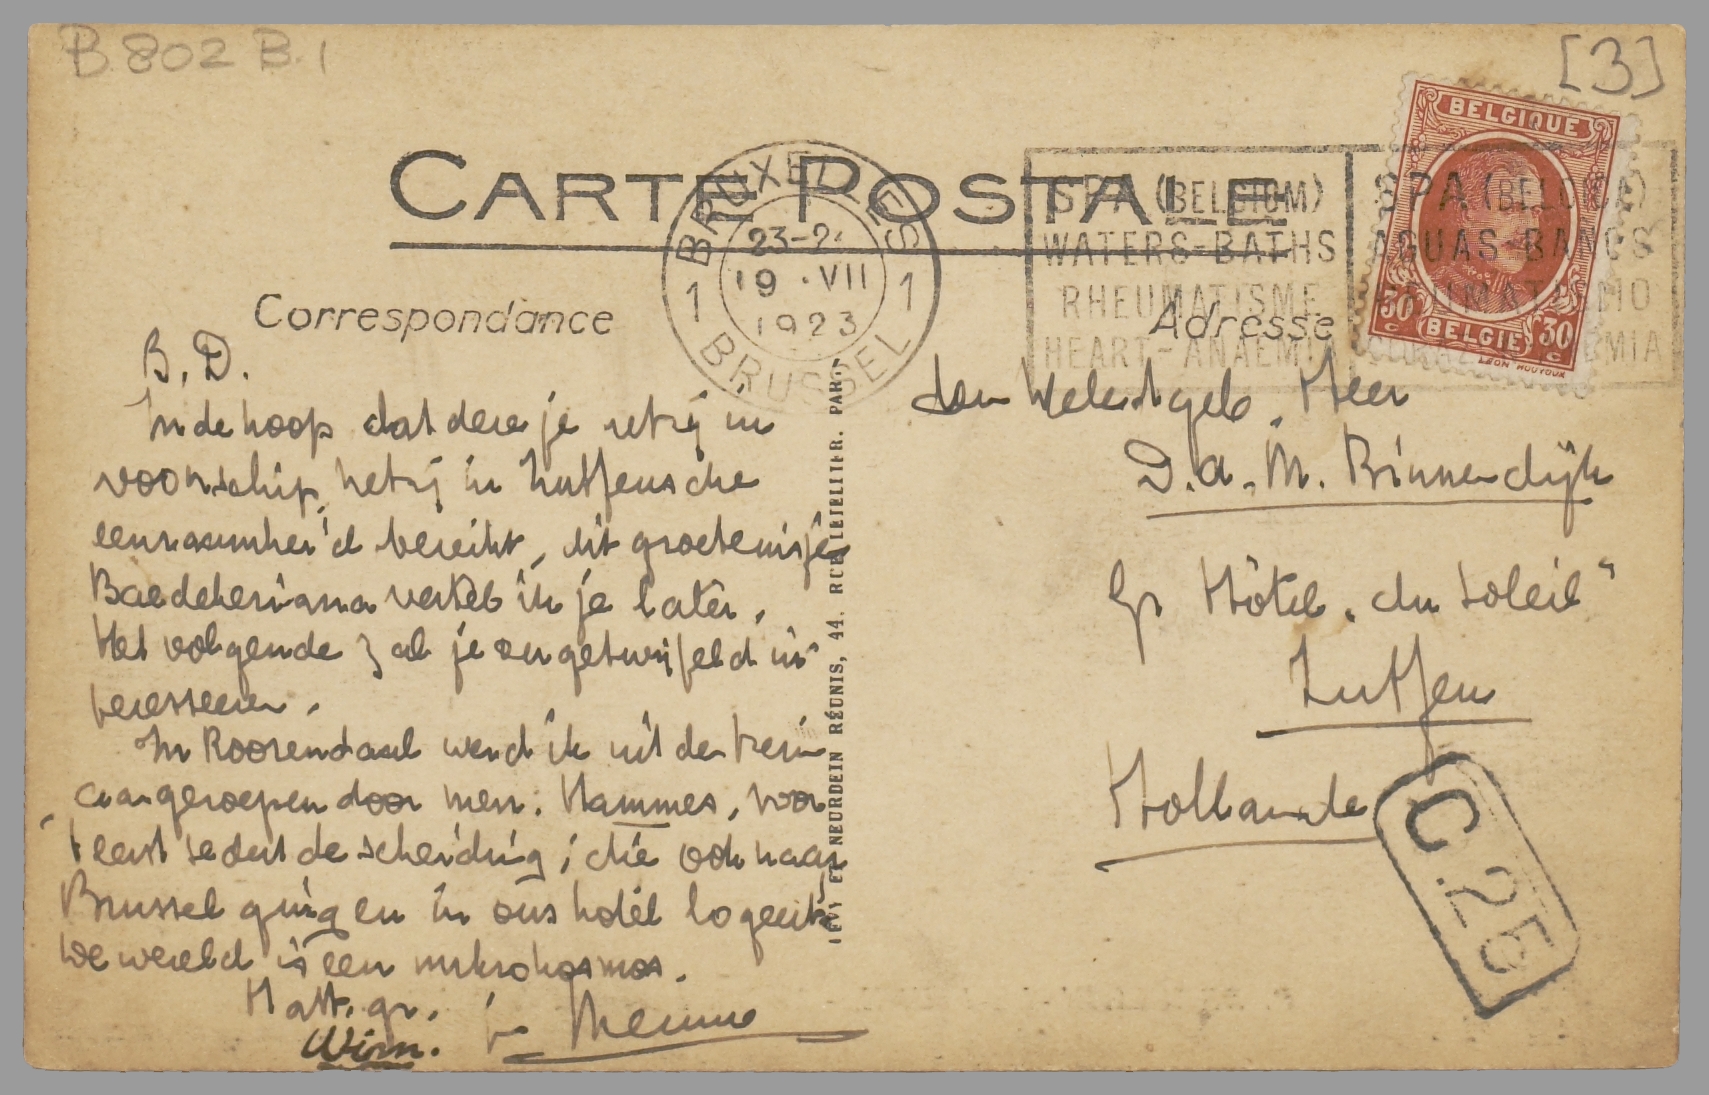 B.802 B.1
[3]
CARTE POSTALE
BRUXELLES
23-2
19 .VII
1923
1 1
BRUSSEL
SPA (BELGIUM)
WATERS-BATHS
RHEUMATISME
HEART-ANAEMIA
SPA (BELGICA)
AGUAS-BANOS
BELGIQUE
30 c BELGIE 30 c
Correspondance
Adresse
B.D.
In de hoop dat deze je hetzij in
voorschip, hetzij in Zutfensche
eenzaamheid bereikt, dit groetenisje
Baedekeriana vertel ik je later.
Het volgende zal je ongetwijfeld in-
teresseeren.
In Roosendaal werd ik uit de trein
aangeroepen door mevr. Hammes, voor
't eerst sedert de scheiding; die ook naar
Brussel ging en in ons hotel logeert.
De wereld is een mikrokosmos.
Hart. gr.
Wim.
je Menno
LEVY ET NEURDEIN RÉUNIS, 44. RUE LETELLIER. PARIS
den WelEd. geb. Heer
D.A.M. Binnendijk
Gr Hôtel "du Soleil"
Zutfen
Hollande
C.25